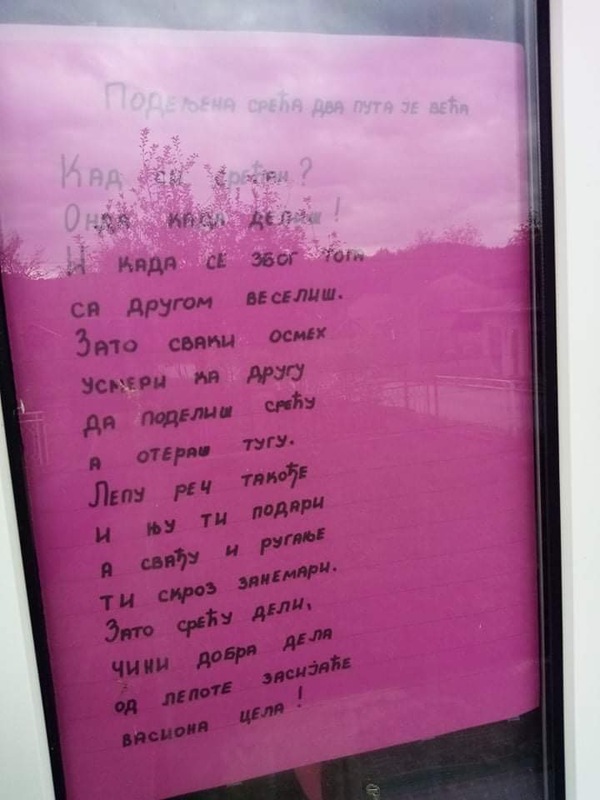 Подељена срећа два пута је већа
Кад си срећан?
Онда када делиш!
И када се због тога
са другом веселиш.
Зато сваки осмех
усмери ка другу
да поделиш срећу
а отераш тугу.
Лепу реч такође
и њу ти подари
а свађу и ругање
ти скроз занемари.
Зато срећу дели,
чини добра дела
од лепоте засијаће
васиона цела!